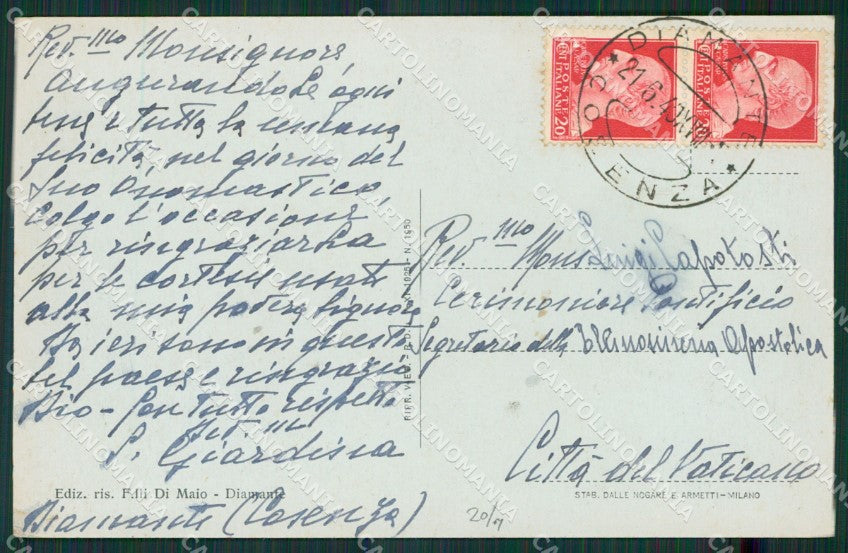 Rev.mo Monsignore,
augurandole ogni
bene e tutta la
felicità, nel giorno del
Suo Onomastico,
Colgo l'occasione
per ringraziarla
per le cortesie usate
alla mia povera Signora
Da ieri sono in questo
bel paese e ringrazio
Dio - Con tutto rispetto
Giardina
Ediz. ris. F.lli Di Maio - Diamante
Diamante (Cosenza)
20/9
1950
POSTE ITALIANE
CENT. 20
POSTE ITALIANE
DIAMANTE
* 21.6.40 XVIII *
COSENZA
Rev.mo Mons Luigi Capotosti
Cerimoniere Pontificio
Segretario della Elemosineria Apostolica
Città del Vaticano
STAB. DALLE NOGARE E ARMETTI - MILANO
CARTOLINOMANIA